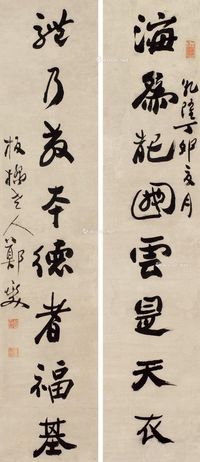 乾隆丁卯夏月
海為龍國雲是天衣
禮乃教本德者福基
板橋人鄭燮